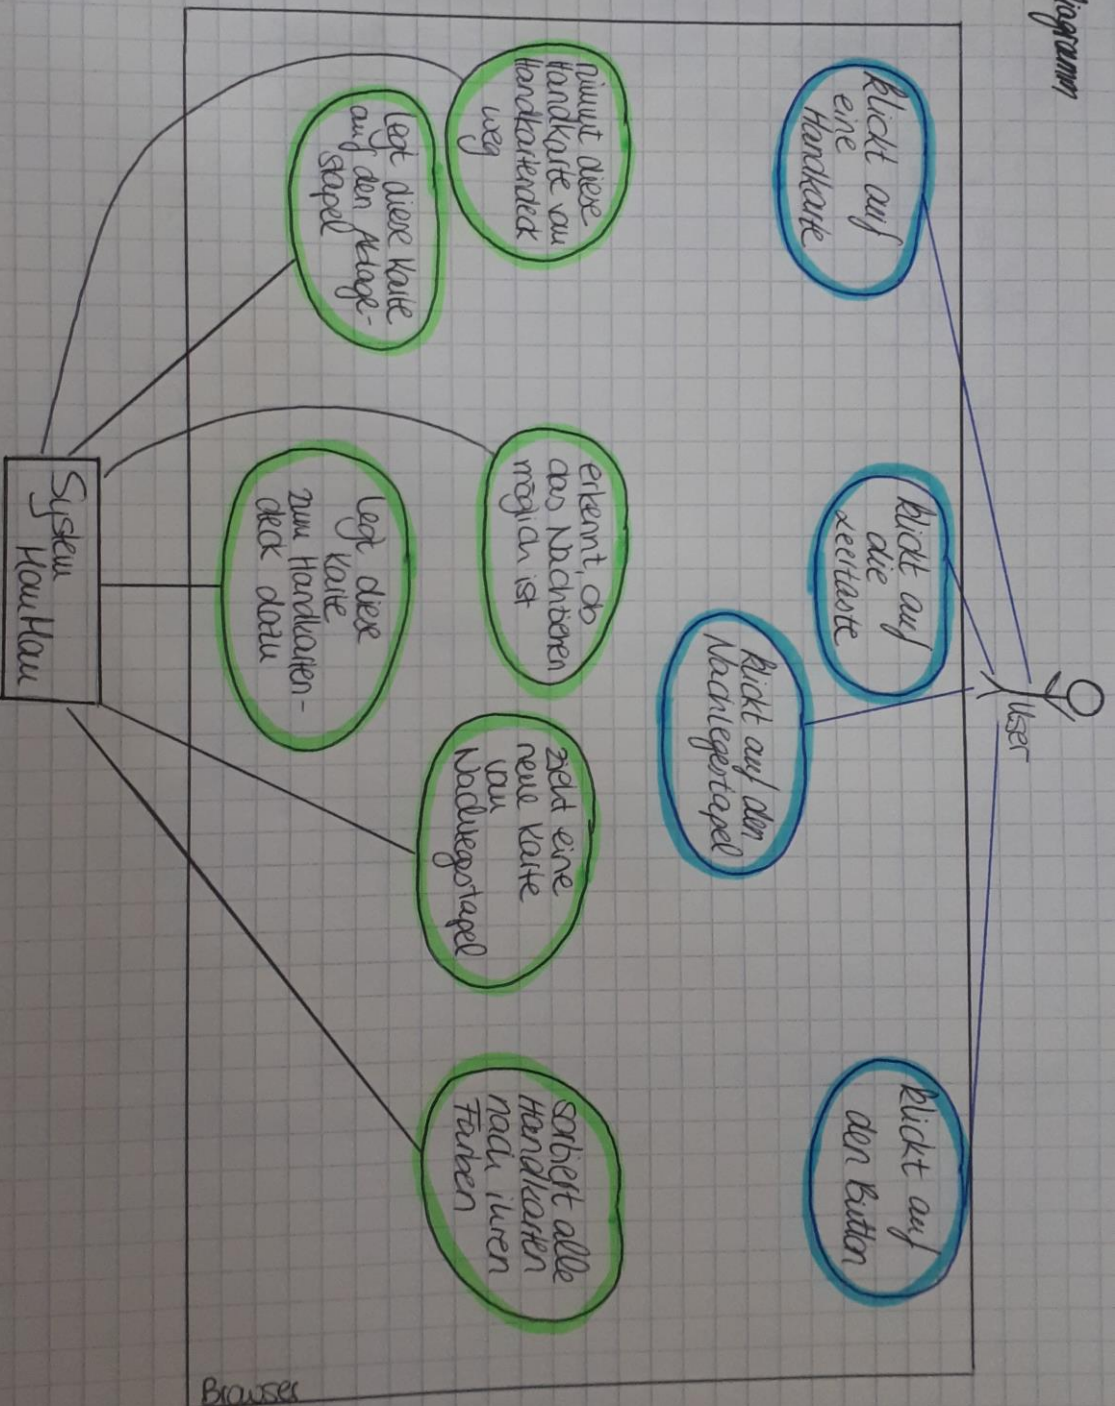 diagramm
User
klickt auf
eine
Handkarte
klickt auf
die
Leertaste
klickt auf den
Nachlegestapel
klickt auf
den Button
nimmt diese
Handkarte vom
Handkartendeck
weg
legt diese Karte
auf den Ablage-
stapel
erkennt, ob
das Nachziehen
möglich ist
legt diese
Karte
zum Handkarten-
deck dazu
zieht eine
neue Karte
vom
Nachlegestapel
sortiert alle
Handkarten
nach ihren
Farben
System
MauMau
Browser